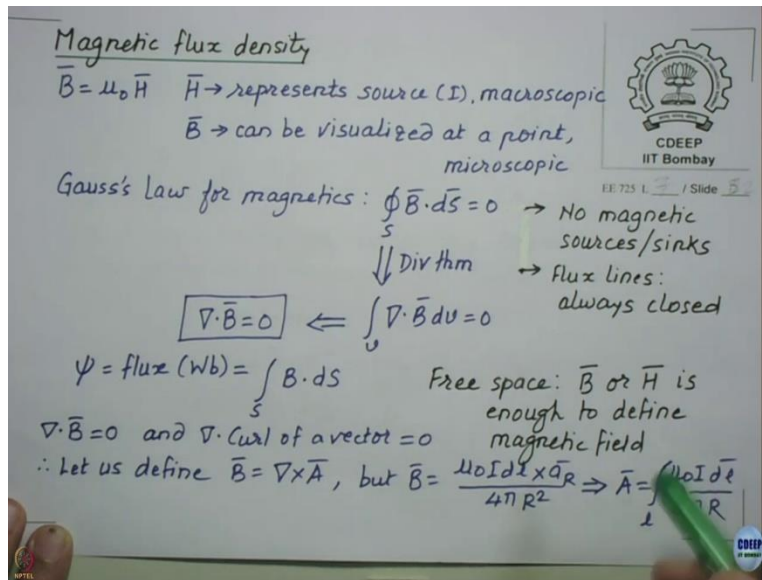 Magnetic flux density
B̅ = μ₀ H̅   H̅ → represents source (I), macroscopic
B̅ → can be visualized at a point,
microscopic
CDEEP
IIT Bombay
EE 725 L / Slide
Gauss's Law for magnetics : ∮_S B̅ · dS̅ = 0
→ No magnetic
sources/sinks
⇓ Div thm
↔ Flux lines :
always closed
∇·B̅ = 0 ⇐ ∫_v ∇·B̅ dv = 0
ψ = flux (Wb) = ∫_S B · dS
Free space : B̅ or H̅ is
enough to define
magnetic field
∇·B̅ = 0 and ∇· Curl of a vector = 0
∴ Let us define B̅ = ∇×A̅ , but B̅ = μ₀Idl̅ × a̅_R / 4πR² ⇒ A̅ = ∫_l μ₀I dl̅ / R
NPTEL
CDEEP
IIT BOMBAY